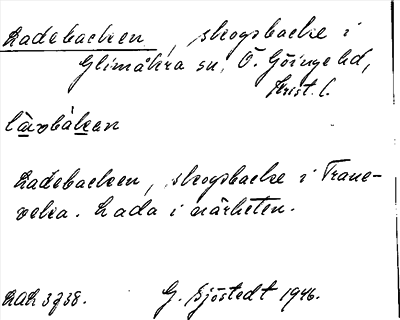 Ladebacken, skogsbacke i
Glimåkra sn, Ö. Göinge hd,
Krist. l.
lavbåkan
Ladebacken, skogsbacke i Trane-
veka. Lada i närheten.
LAL 3738. G. Sjöstedt 1946.